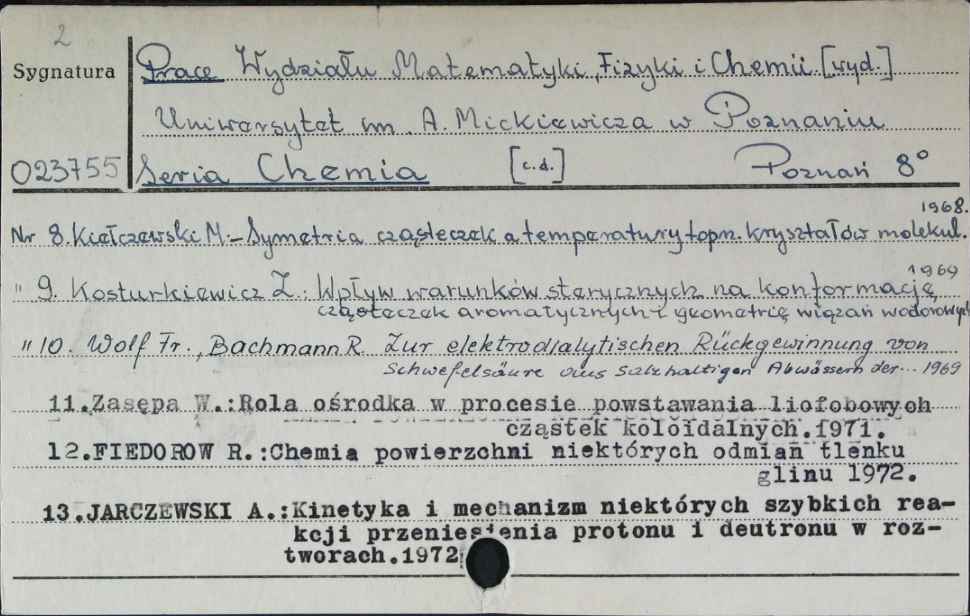 2
Sygnatura
Prace Wydziału Matematyki, Fizyki i Chemii [wyd.]
Uniwersytet im. A. Mickiewicza w Poznaniu
023755 Seria Chemia [c.d.] Poznań 8°
1968.
Nr 8. Kiełczewski M.- Symetria cząsteczek a temperatury topn. kryształów molekul.
1969
" 9. Kosturkiewicz Z. : Wpływ warunków sterycznych na konformację
cząsteczek aromatycznych i geometrię wiązań wodorowych
" 10. Wolf Fr., Bachmann R. Zur elektrodialytischen Rückgewinnung von
Schwefelsäure aus salzhaltigen Abwässern der... 1969
11.Zasępa W.:Rola ośrodka w procesie powstawania liofobowych
cząstek koloidalnych.1971.
12.FIEDOROW R.:Chemia powierzchni niektórych odmian tlenku
glinu 1972.
13.JARCZEWSKI A.:Kinetyka i mechanizm niektórych szybkich rea-
kcji przeniesienia protonu i deutronu w roz-
tworach.1972